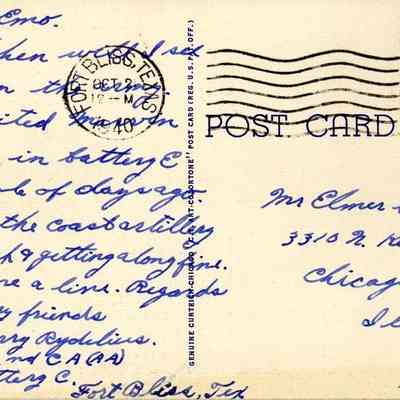 Emo.
when will I see
in the army.
ited me on
in battery E
ple of days ago.
the coast artillery
& getting along fine.
me a line. Regards
friends
Harry Rydelius.
nd CA (AA)
ttery C.
Fort Bliss, Tex
FORT BLISS, TEXAS
OCT 2
12 - M
1940
GENUINE CURTEICH-CHICAGO "C.T. ART-COLORTONE" POST CARD (REG. U.S. PAT. OFF.)
POST CARD
Mr Elmer
3310 N.
Chicago